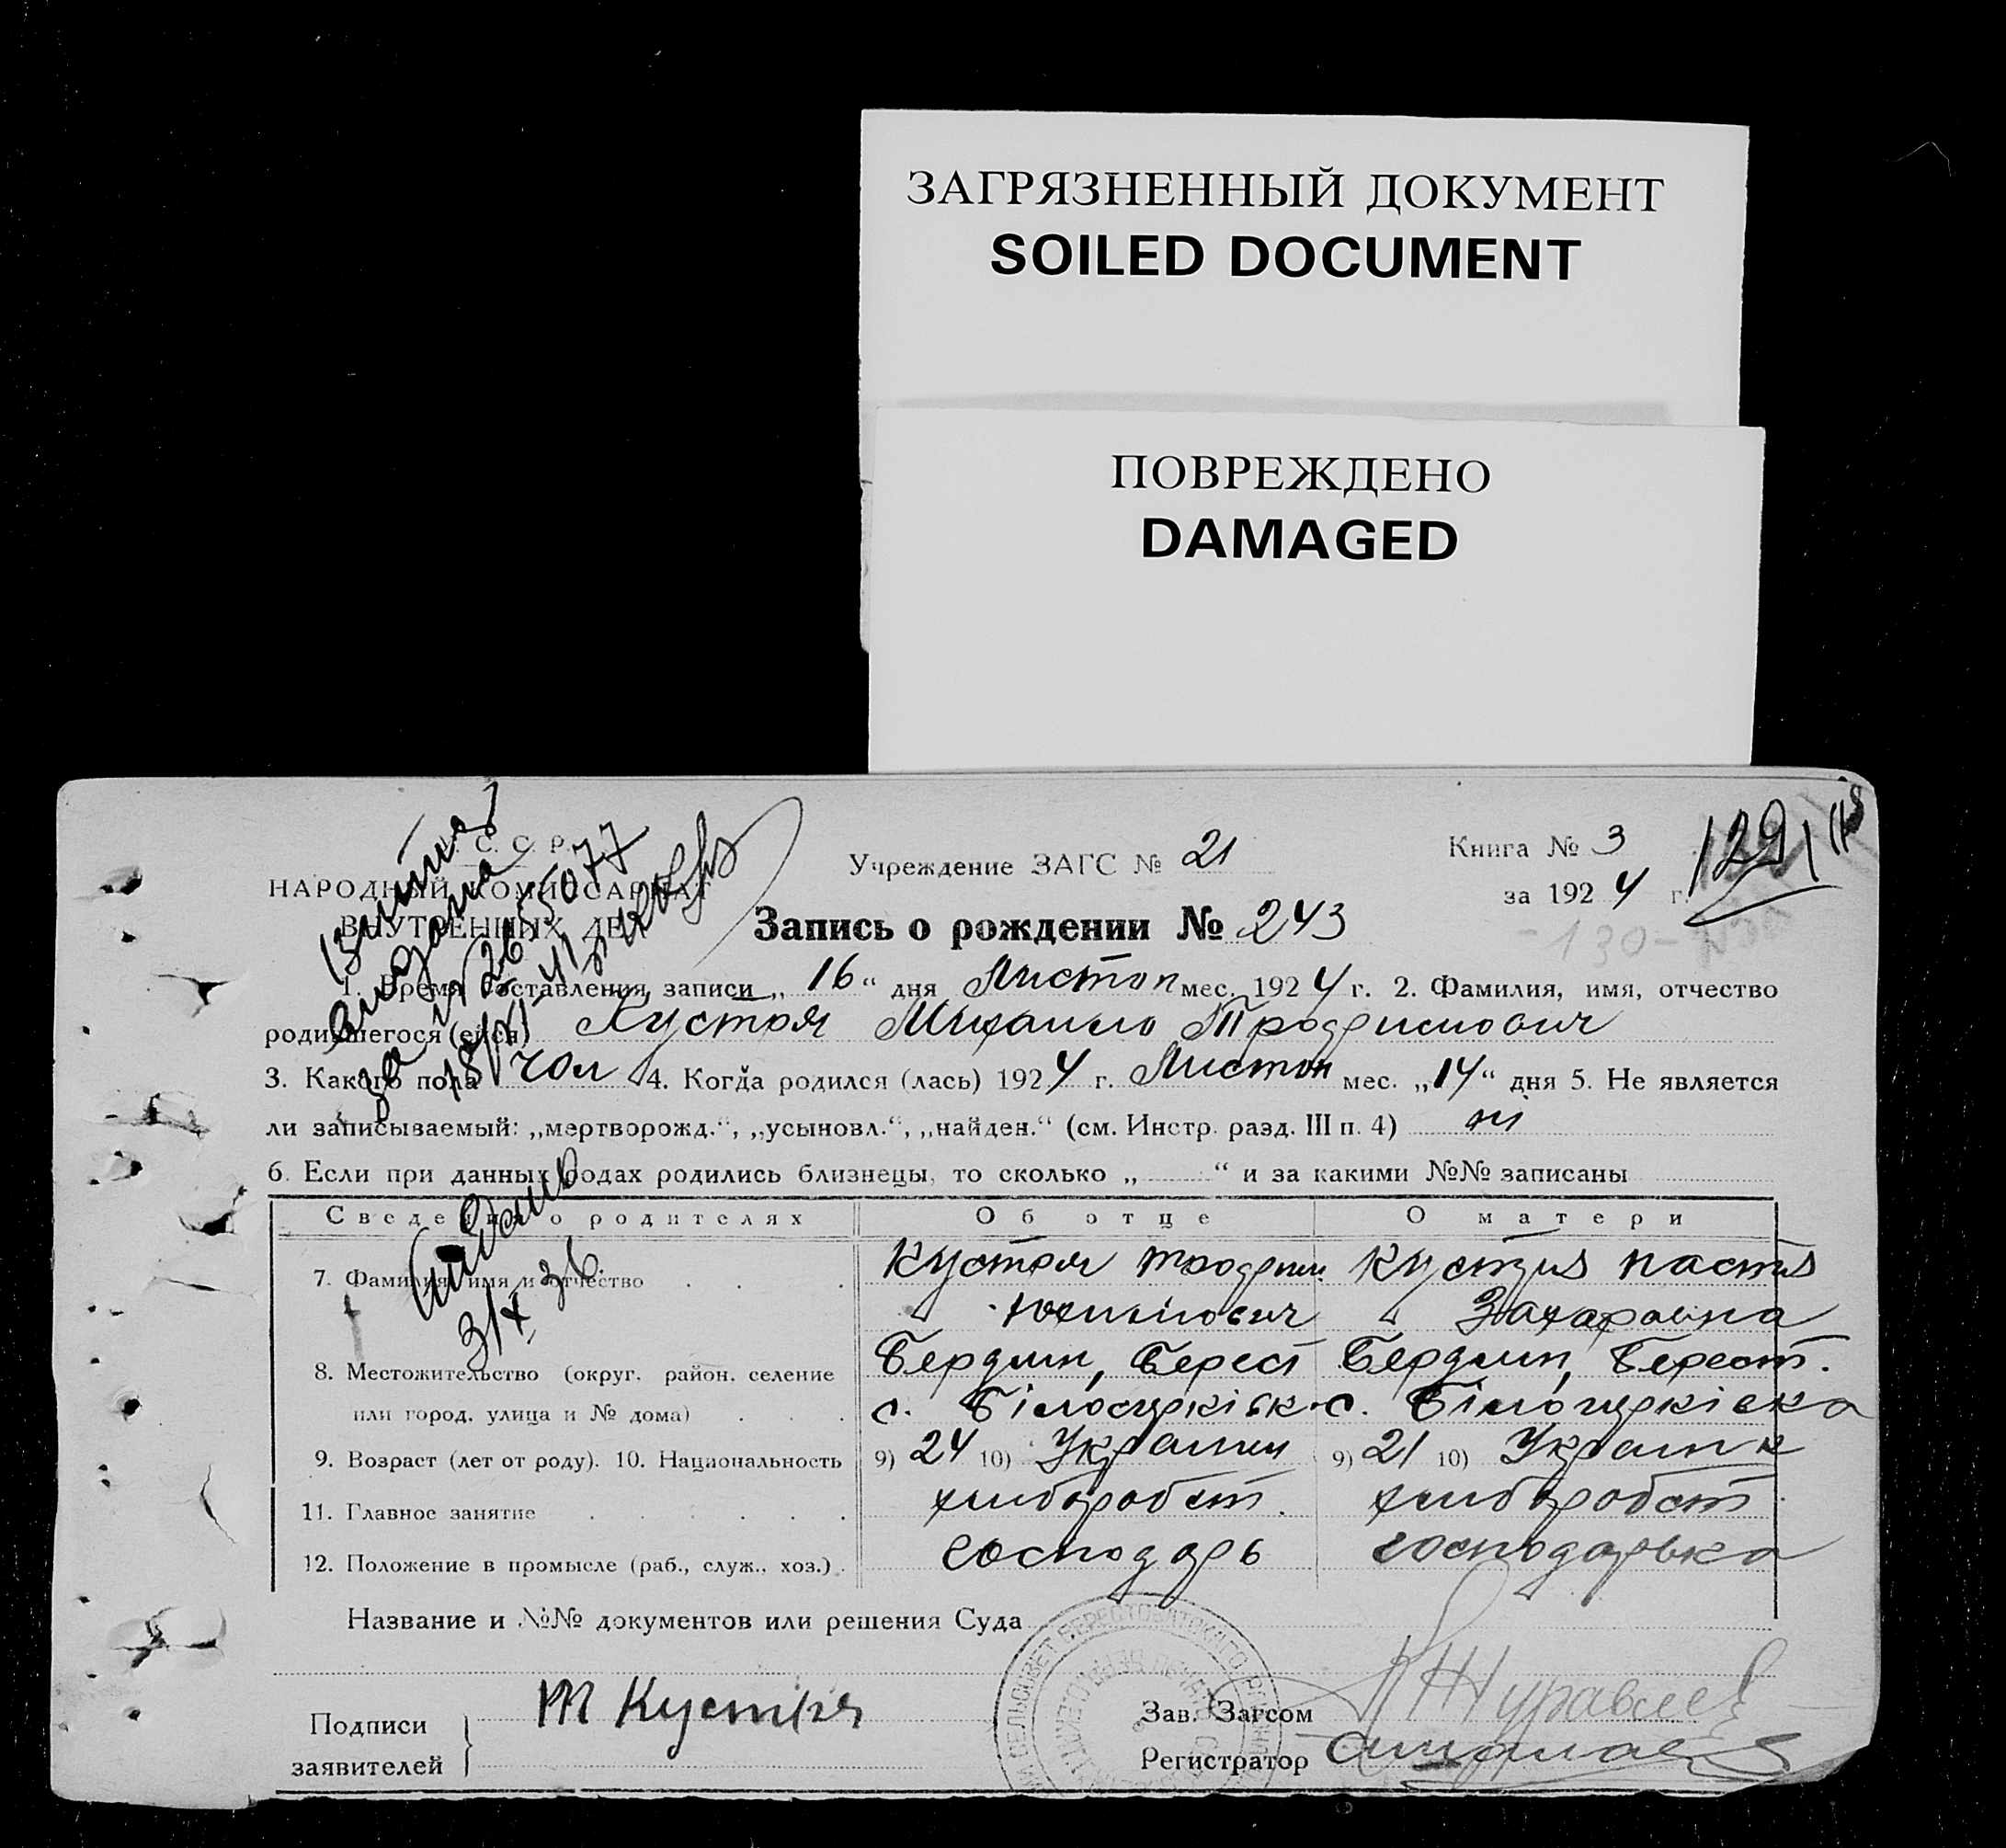 ЗАГРЯЗНЕННЫЙ ДОКУМЕНТ
SOILED DOCUMENT
ПОВРЕЖДЕНО
DAMAGED
С. С. Р.
НАРОДНЫЙ КОМИССАРИАТ
ВНУТРЕННИХ ДЕЛ
Учреждение ЗАГС № 21
Книга № 3
за 1924 г.
129
Запись о рождении № 243
-130-
1. Время составления записи „16“ дня Листоп мес. 1924 г. 2. Фамилия, имя, отчество
родившегося (ейся) Кустря Михаило
3. Какого пола чол 4. Когда родился (лась) 1924 г. Листоп мес. „14“ дня 5. Не является
ли записываемый: „мертворожд.“, „усыновл.“, „найден.“ (см. Инстр. разд. III п. 4) ні
6. Если при данных родах родились близнецы, то сколько „ “ и за какими №№ записаны
Сведения о родителях Об отце О матери
7. Фамилия, имя и отчество
Кустря
Захаровна
31 X 36
8. Местожительство (округ, район, селение
или город, улица и № дома)
Бердян, Берест
Бердян, Берест.
9. Возраст (лет от роду). 10. Национальность 9) 24 10) Украин 9) 21 10) Украин
11. Главное занятие хлібороб хлібороб
12. Положение в промысле (раб., служ., хоз.) господарь господарька
Название и №№ документов или решения Суда
Подписи
заявителей
Т Кустря
Зав. Загсом Журавлев
Регистратор